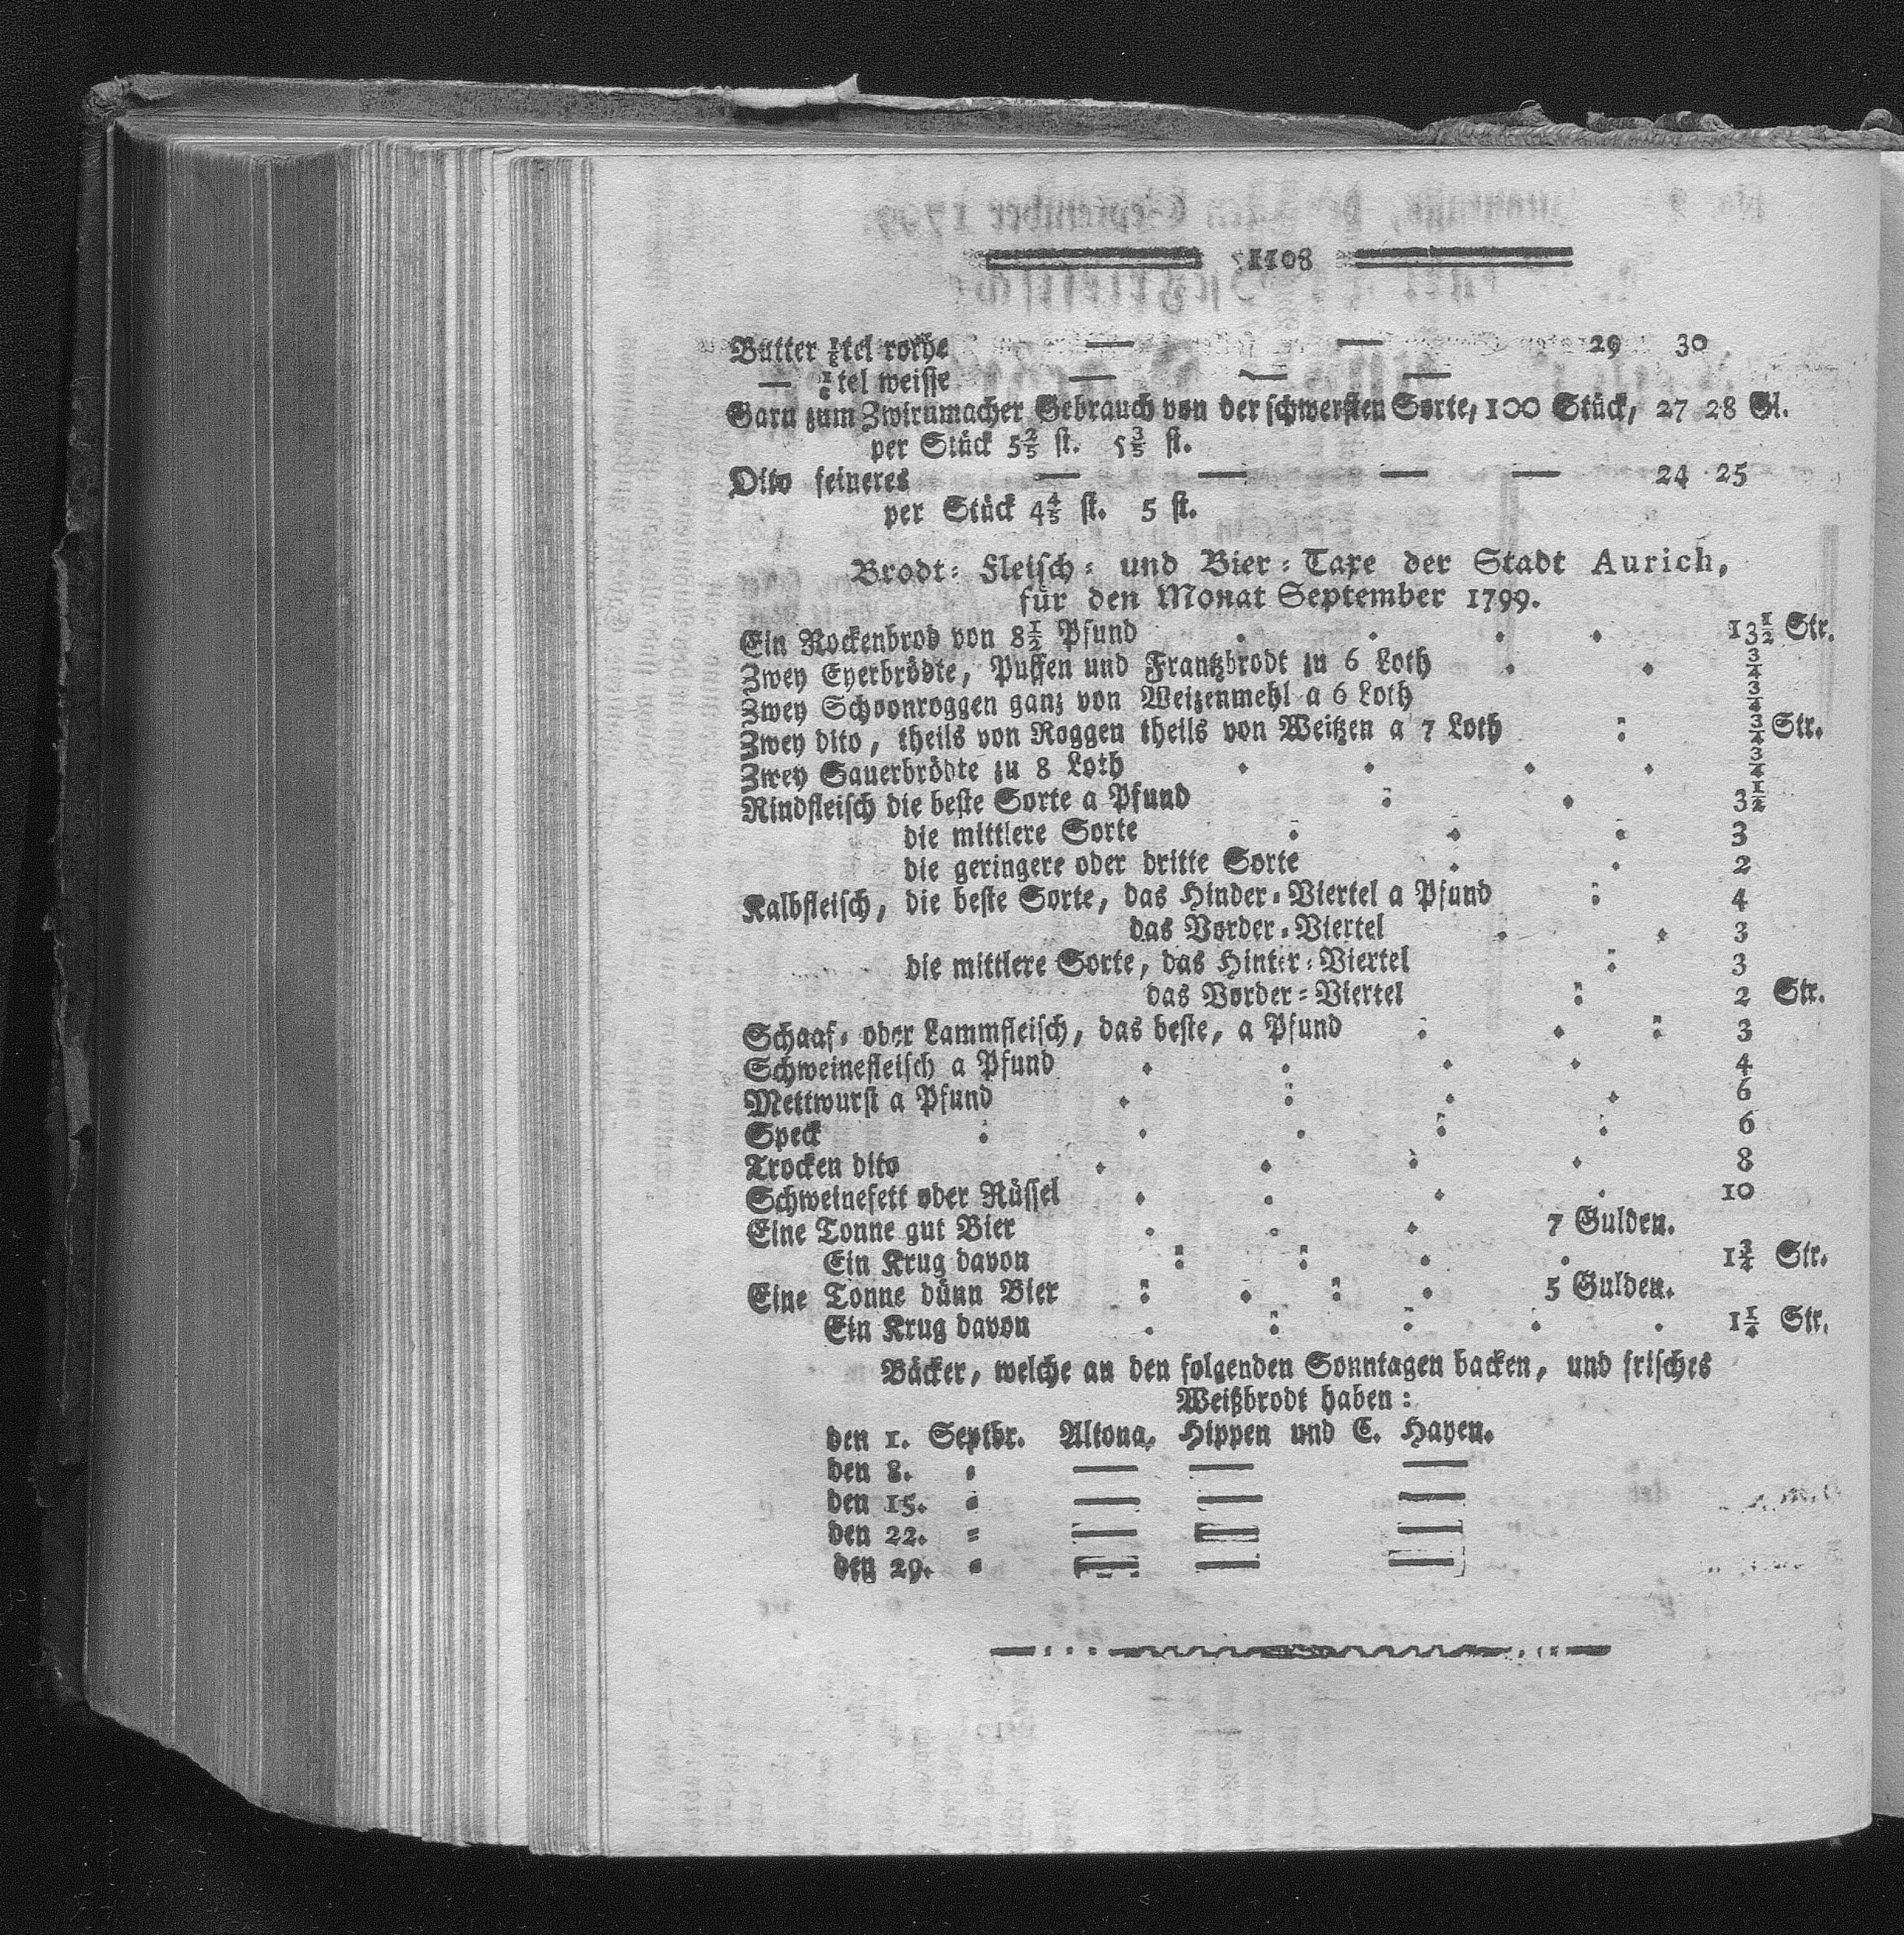 1108
Butter ⅛tel rothe — — 29 30
— ⅛tel weisse — — —
Garn zum Zwirnmacher Gebrauch von der schwersten Sorte, 100 Stück, 27 28 Gl.
per Stück 5⅖ st. 5⅗ st.
Dito feineres — — — — 24 25
per Stück 4⅘ st. 5 st.
Brodt- Fleisch- und Bier-Taxe der Stadt Aurich,
für den Monat September 1799.
Ein Rockenbrod von 8½ Pfund 13½ Str.
Zwey Eyerbrödte, Puffen und Frantzbrodt zu 6 Loth ¾
Zwey Schoonroggen ganz von Weitzenmehl a 6 Loth ¾
Zwey dito, theils von Roggen theils von Weitzen a 7 Loth ¾ Str.
Zwey Sauerbrödte zu 8 Loth ¾
Rindfleisch die beste Sorte a Pfund 3½
die mittlere Sorte 3
die geringere oder dritte Sorte 2
Kalbfleisch, die beste Sorte, das Hinder-Viertel a Pfund 4
das Vorder-Viertel 3
die mittlere Sorte, das Hinter-Viertel 3
das Vorder-Viertel 2 Str.
Schaaf- oder Lammfleisch, das beste, a Pfund 3
Schweinefleisch a Pfund 4
Mettwurst a Pfund 6
Speck 6
Trocken dito 8
Schweinefett oder Rüssel 10
Eine Tonne gut Bier 7 Gulden.
Ein Krug davon 1¾ Str.
Eine Tonne dünn Bier 5 Gulden.
Ein Krug davon 1¼ Str.
Bäcker, welche an den folgenden Sonntagen backen, und frisches
Weißbrodt haben:
den 1. Septbr. Altona, Hippen und C. Hayen.
den 8. — — —
den 15. — — —
den 22. — — —
den 29. — — —